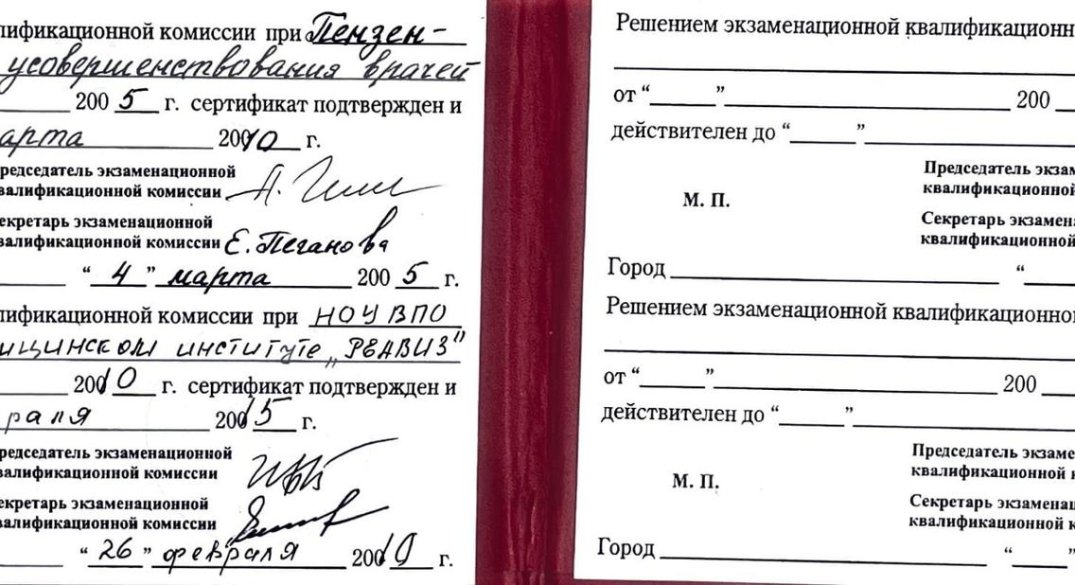 лификационной комиссии при Пензен-
усовершенствования врачей
200 5 г. сертификат подтвержден и
арта 2010 г.
редседатель экзаменационной
валификационной комиссии
екретарь экзаменационной
валификационной комиссии Е. Пеганова
“ 4 ” марта 200 5 г.
лификационной комиссии при НОУ ВПО
ицинском институте „РЕАВИЗ”
2010 г. сертификат подтвержден и
раля 2015 г.
редседатель экзаменационной
валификационной комиссии
екретарь экзаменационной
валификационной комиссии
“ 26 ” февраля 2010 г.
Решением экзаменационной квалификационн
от “ ” 200
действителен до “ ”
Председатель экзам
квалификационной
М. П.
Секретарь экзамена
квалификационной
Город “
Решением экзаменационной квалификационно
от “ ” 200
действителен до “ ”
Председатель экзаме
квалификационной к
М. П.
Секретарь экзаменац
квалификационной к
Город “ ”